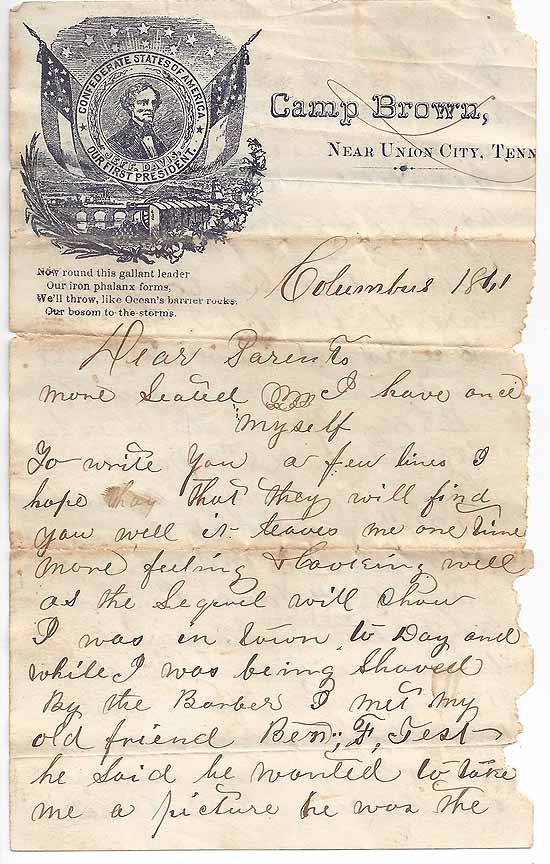 CONFEDERATE STATES OF AMERICA.
JEFF. DAVIS.
OUR FIRST PRESIDENT.
Camp Brown,
NEAR UNION CITY, TENN
Now round this gallant leader
Our iron phalanx forms,
We'll throw, like Ocean's barrier rocks,
Our bosom to the storms.
Columbus 1861
Dear Parents
more Seated I have once
myself
To write You a few lines I
hope that they will find
you well it leaves me one time
more feeling & looking well
as the Sequel will show
I was in town to Day and
while I was being Shaved
By the Barber I met my
old friend Benj; F, Test
he Said he wanted to take
me a picture he was the